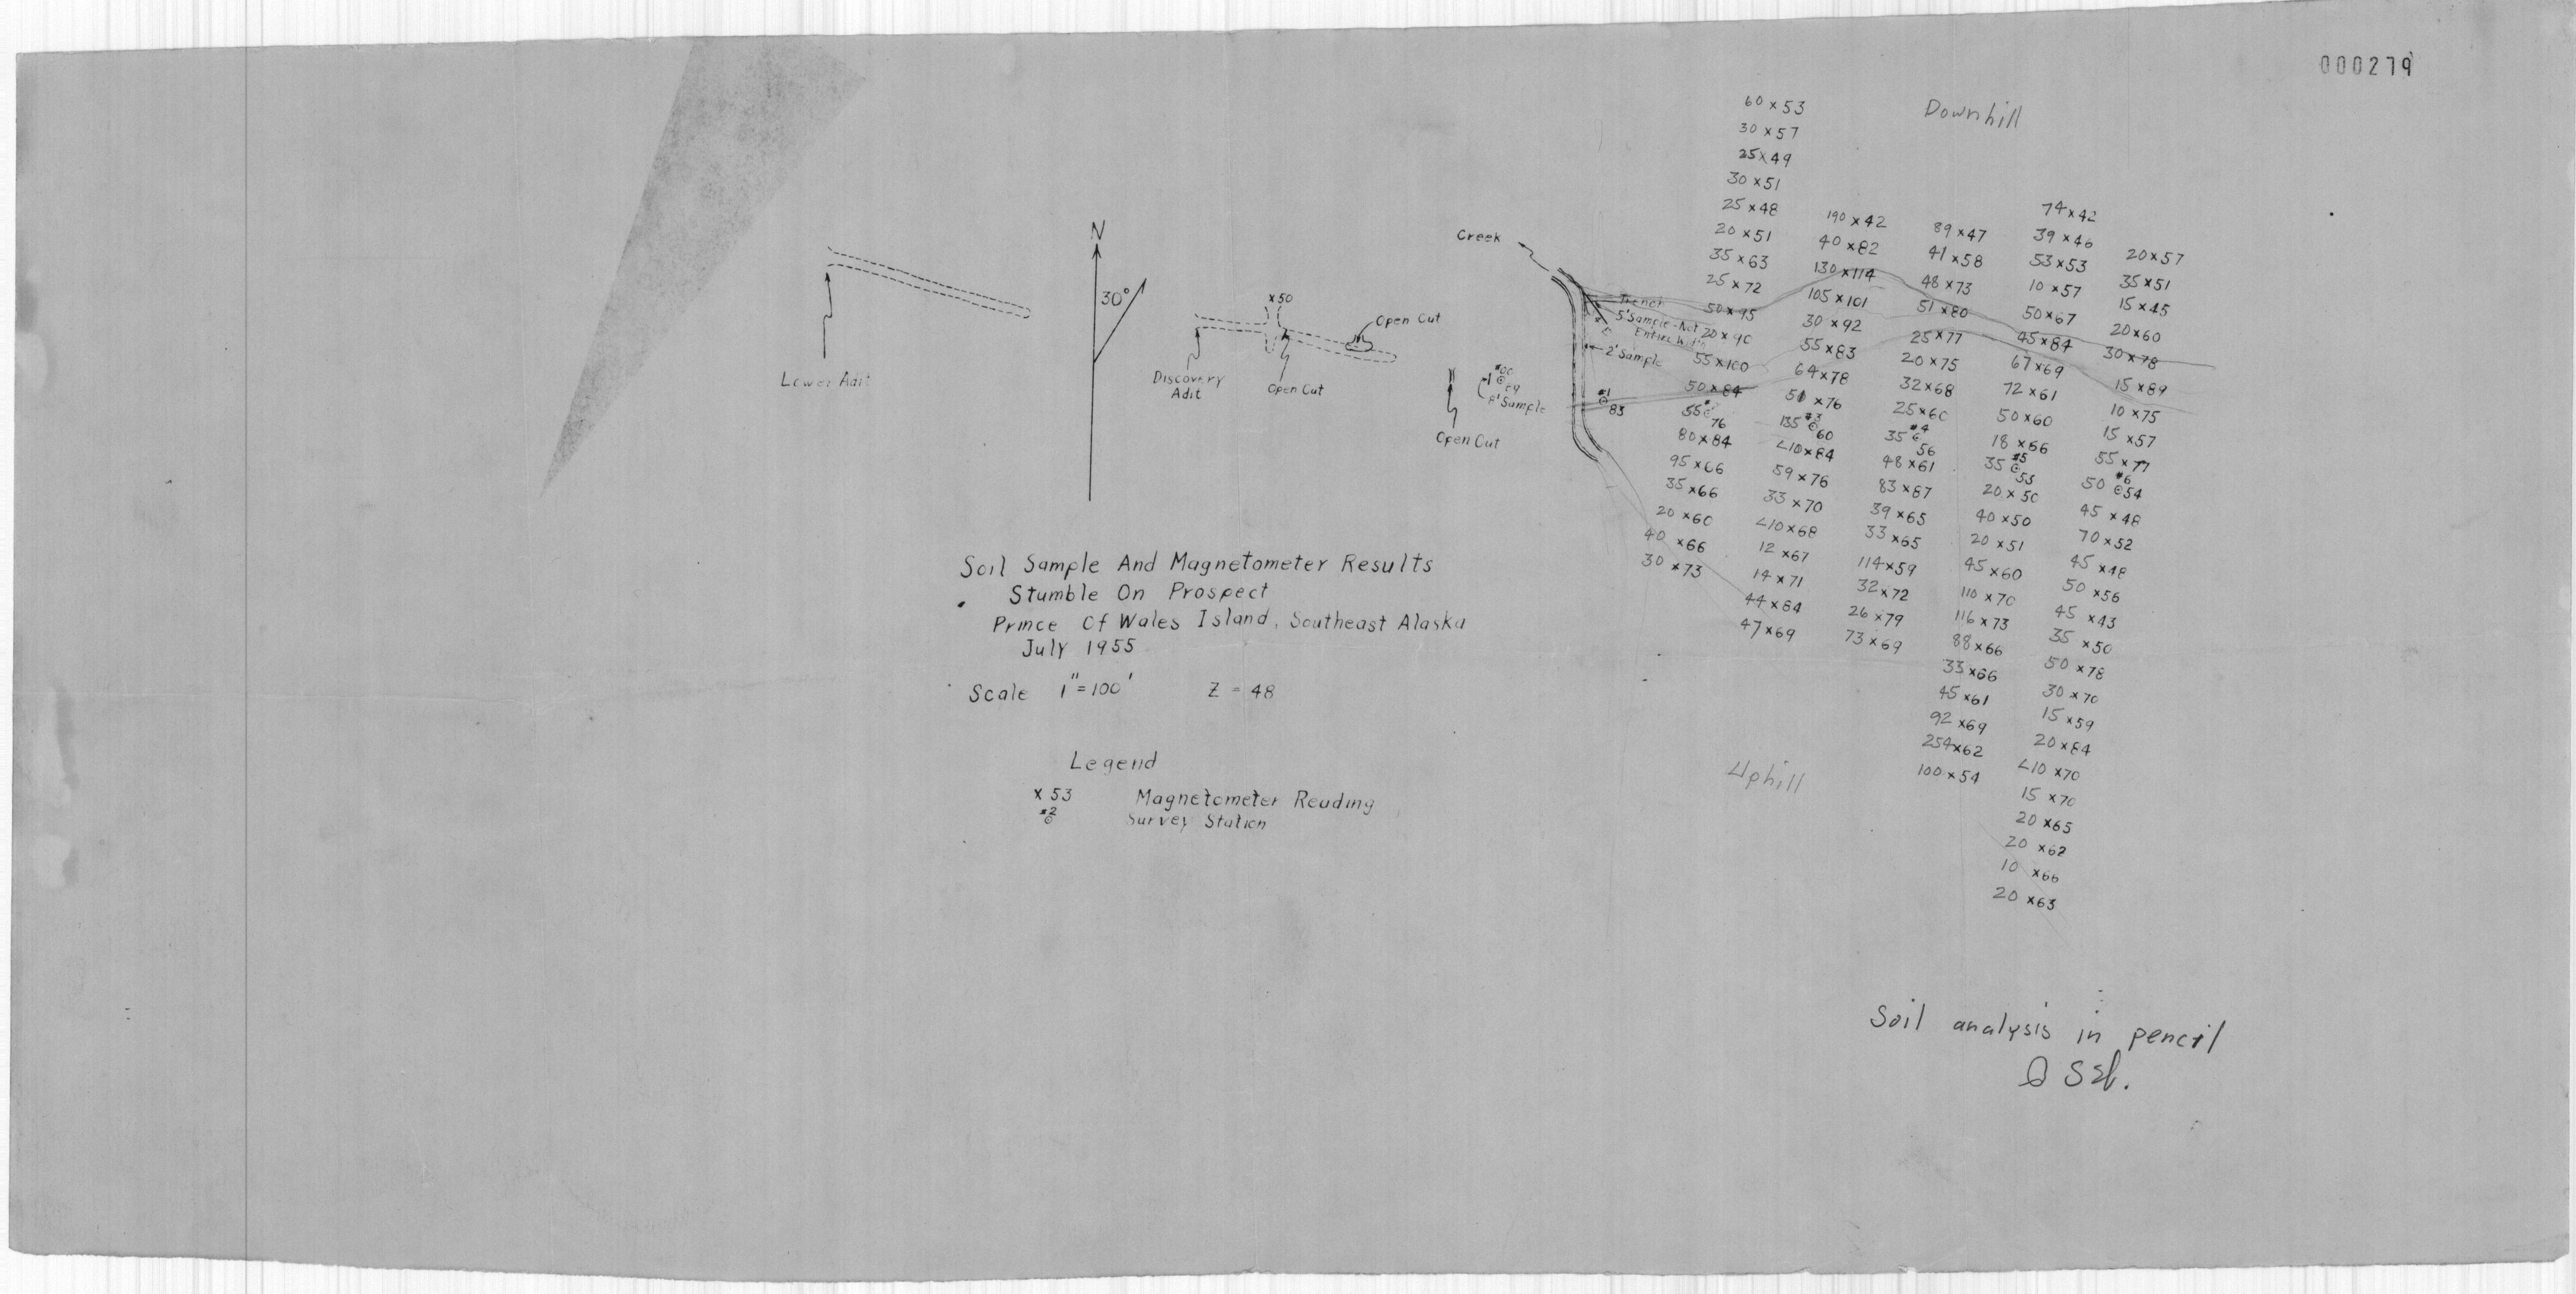 000279
Downhill
60 x 53
30 x 57
25 x 49
30 x 51
25 x 48
20 x 51
35 x 63
25 x 72
50 x 95
20 x 90
55 x 100
50 x 84
55
76
80 x 84
95 x 66
35 x 66
20 x 60
40 x 66
30 x 73
190 x 42
40 x 82
130 x 114
105 x 101
30 x 92
55 x 83
64 x 78
51 x 76
135 #3 60
<10 x 84
59 x 76
33 x 70
<10 x 68
12 x 67
14 x 71
44 x 84
47 x 69
89 x 47
41 x 58
48 x 73
51 x 80
25 x 77
20 x 75
32 x 68
25 x 60
35 #4 56
48 x 61
83 x 67
39 x 65
33 x 65
114 x 59
32 x 72
26 x 79
73 x 69
74 x 42
39 x 46
53 x 53
10 x 57
50 x 67
45 x 84
67 x 69
72 x 61
50 x 60
18 x 56
35 #5 53
20 x 50
40 x 50
20 x 51
45 x 60
110 x 70
116 x 73
88 x 66
33 x 66
45 x 61
92 x 69
254 x 62
100 x 54
20 x 57
35 x 51
15 x 45
20 x 60
30 x 78
15 x 89
10 x 75
15 x 57
55 x 77
50 #6 54
45 x 48
70 x 52
45 x 48
50 x 56
45 x 43
35 x 50
50 x 78
30 x 70
15 x 59
20 x 84
<10 x 70
15 x 70
20 x 65
20 x 62
10 x 66
20 x 63
Uphill
Creek
Trench
5' Sample-Not
Entire Width
2' Sample
#1
83
8' Sample
Open Cut
N
30°
x 50
Open Cut
Open Cut
Discovery
Adit
Lower Adit
Soil Sample And Magnetometer Results
Stumble On Prospect
Prince Of Wales Island, Southeast Alaska
July 1955
Scale 1"=100' Z = 48
Legend
x 53 Magnetometer Reading
#2 Survey Station
Soil analysis in pencil